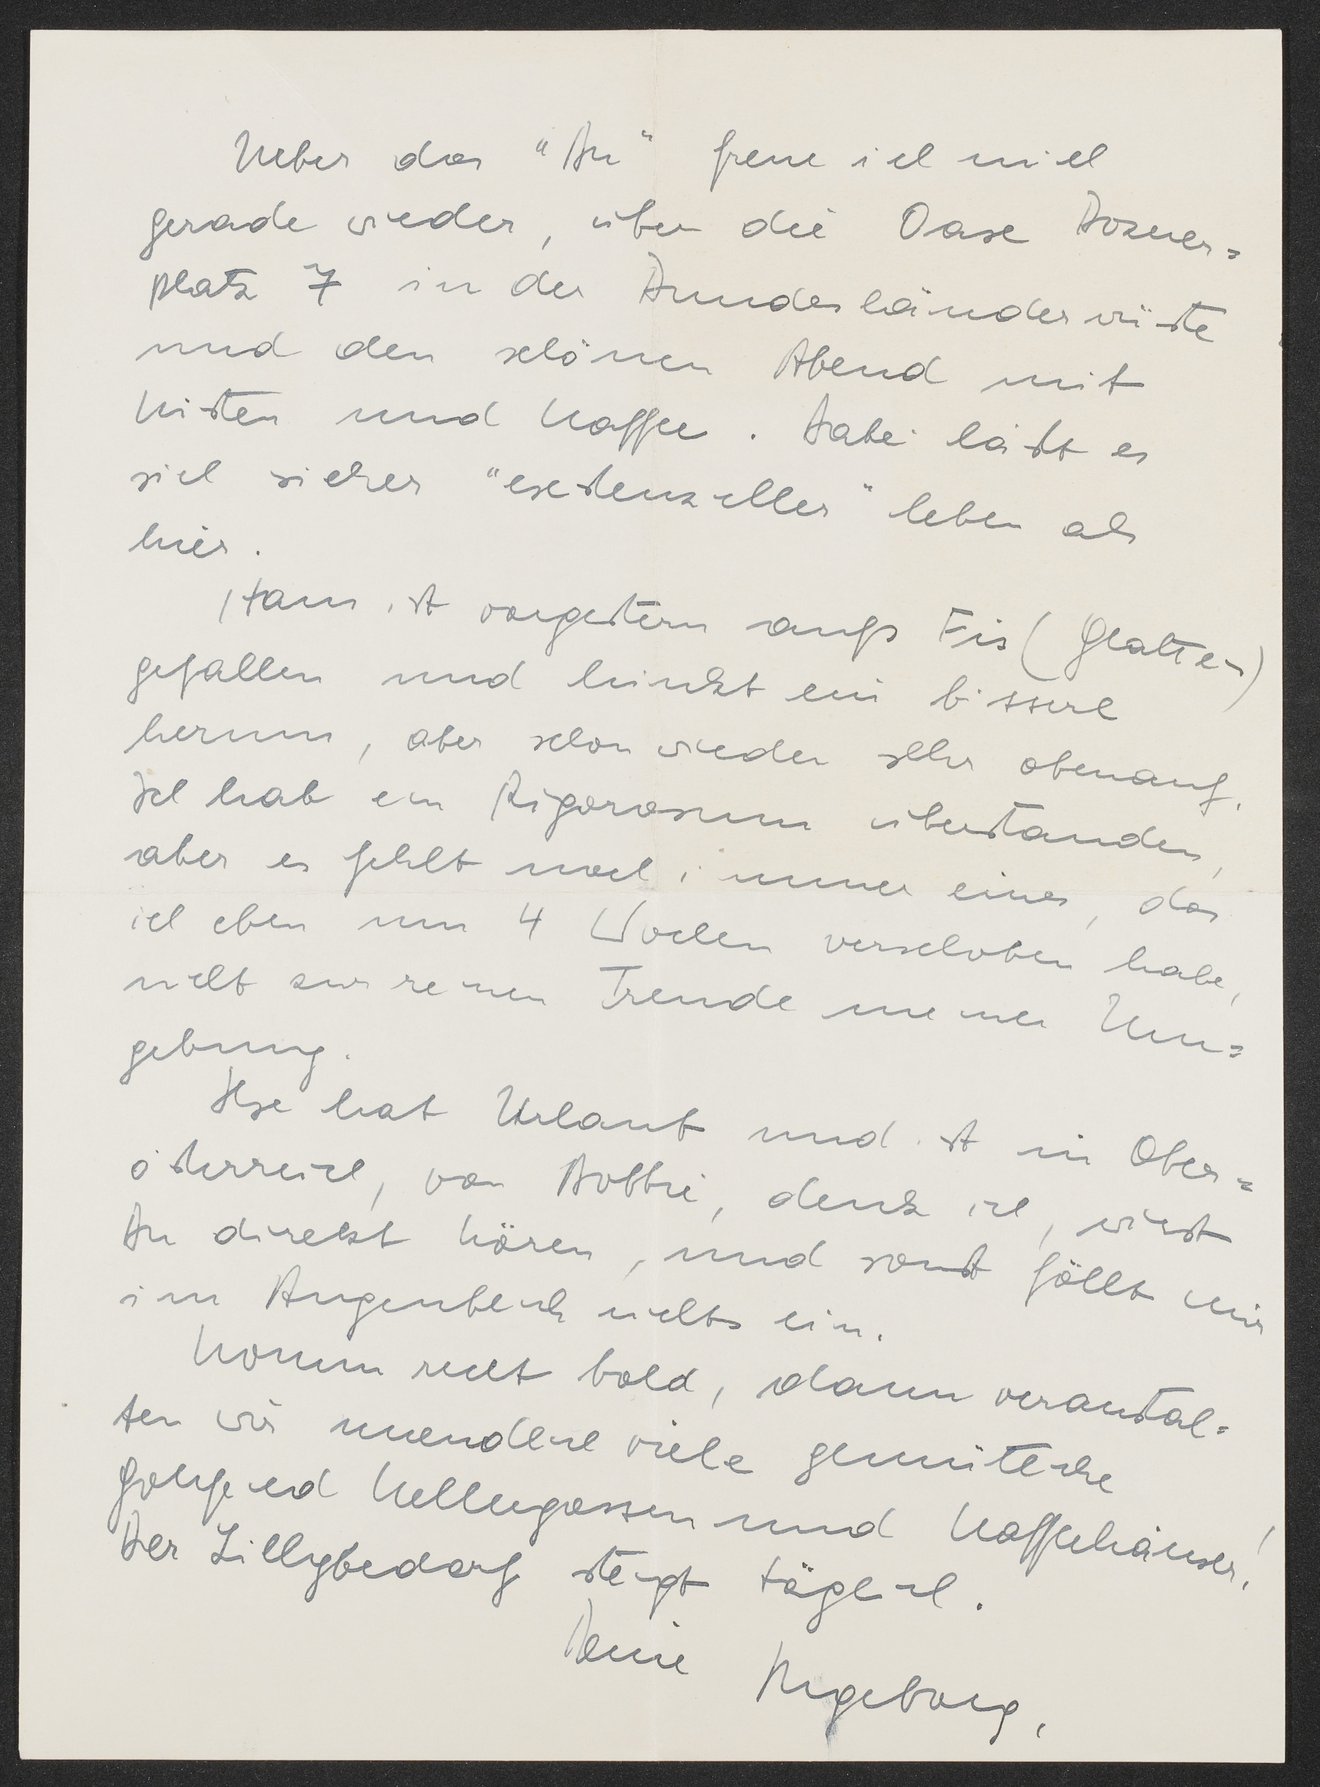 Ueber das "Du" freue ich mich
gerade wieder, über die Oase Bozner=
platz 7 in der Bundesländerwüste
und den schönen Abend mit
Kisten und Kaffee. Dabei läßt es
sich sicher "existenzieller" leben als
hier.
Hans ist vorgestern aufs Eis (Glatteis)
gefallen und hinkt ein bisserl
herum, aber schon wieder sehr obenauf.
Ich hab ein Rigorosum überstanden,
aber es fehlt noch immer eines, das
ich eben um 4 Wochen verschoben habe,
nicht zur reinen Freude meiner Um=
gebung.
Ilse hat Urlaub und ist in Ober=
österreich, von Bobbie, denk ich, wirst
Du direkt hören, und sonst fällt mir
im Augenblick nichts ein.
Komm recht bald, dann veranstal=
ten wir unendlich viele gemütliche
Kellergassen und Kaffeehäuser!
Der Lillybedarf steigt täglich.
Deine Ingeborg.